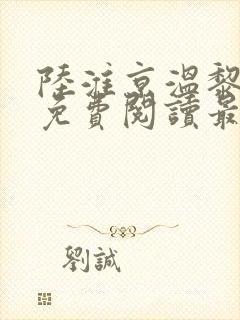 陸淮京溫黎
免費閱讀最
劉誠